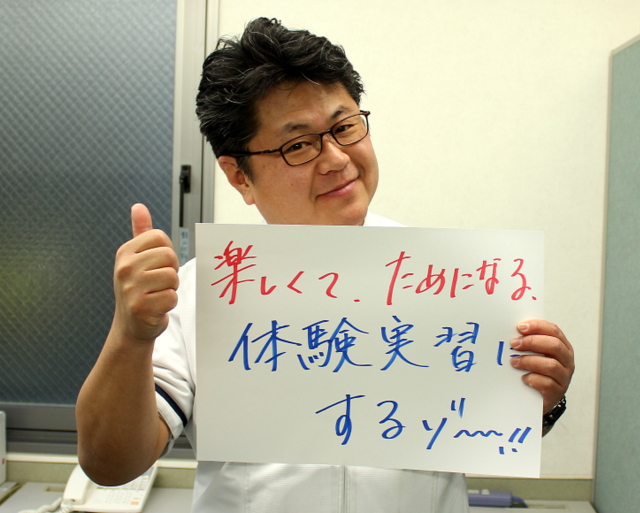 楽しくて、ためになる、
体験実習に
するゾ〜!!